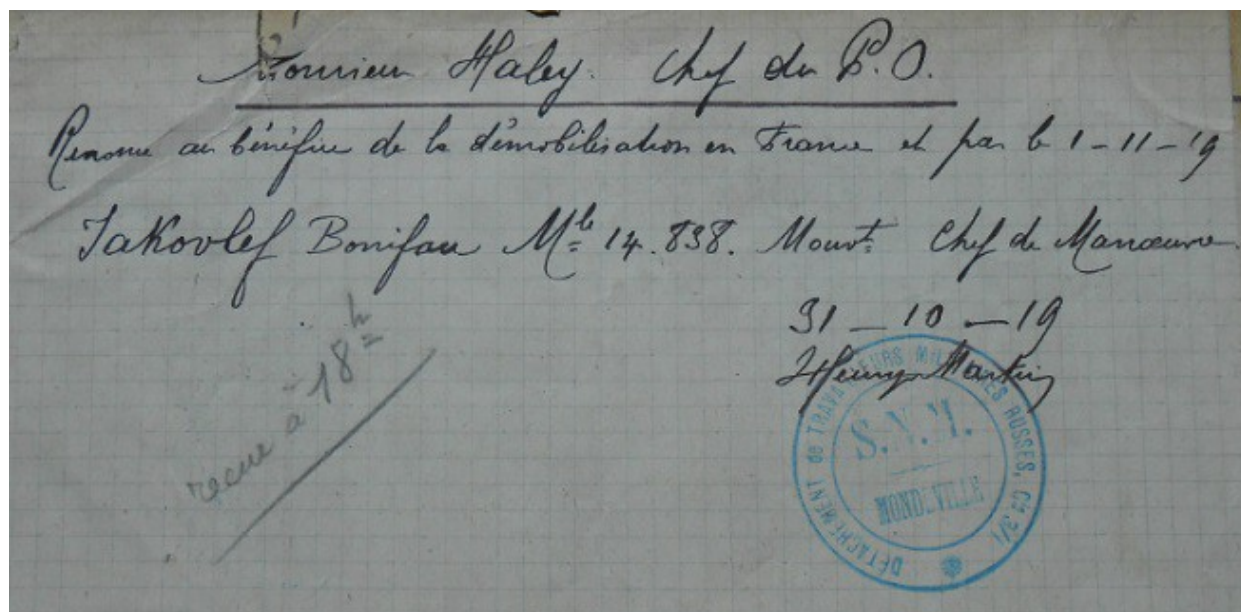 Monsieur Haley. Chef du P.O.
Renonce au bénéfice de la démobilisation en France et part le 1-11-19
Jakovlef Boniface Mle 14.838. Mouvt Chef de Manœuvre
31-10-19
Henry Martin
recue à 18h
DÉTACHEMENT de TRAVAILLEURS MILITAIRES RUSSES, Cie 3/1
S.N.M.
MONDEVILLE